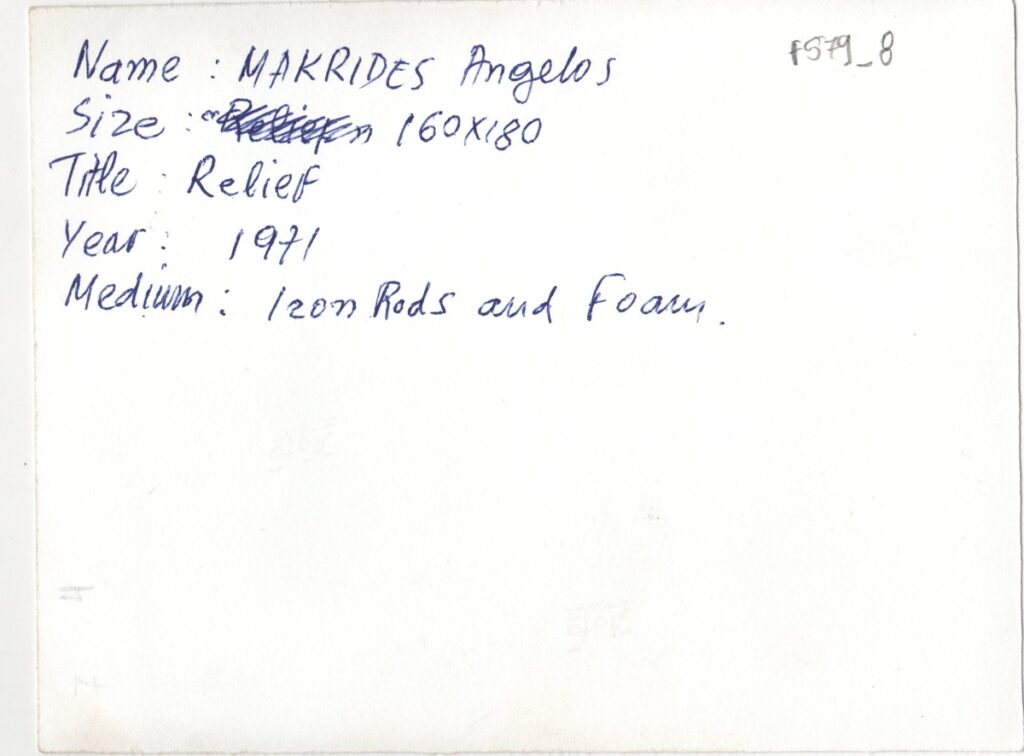 FS79_8
Name : MAKRIDES Angelos
Size : 160X180
Title : Relief
Year : 1971
Medium : Iron Rods and Foam.